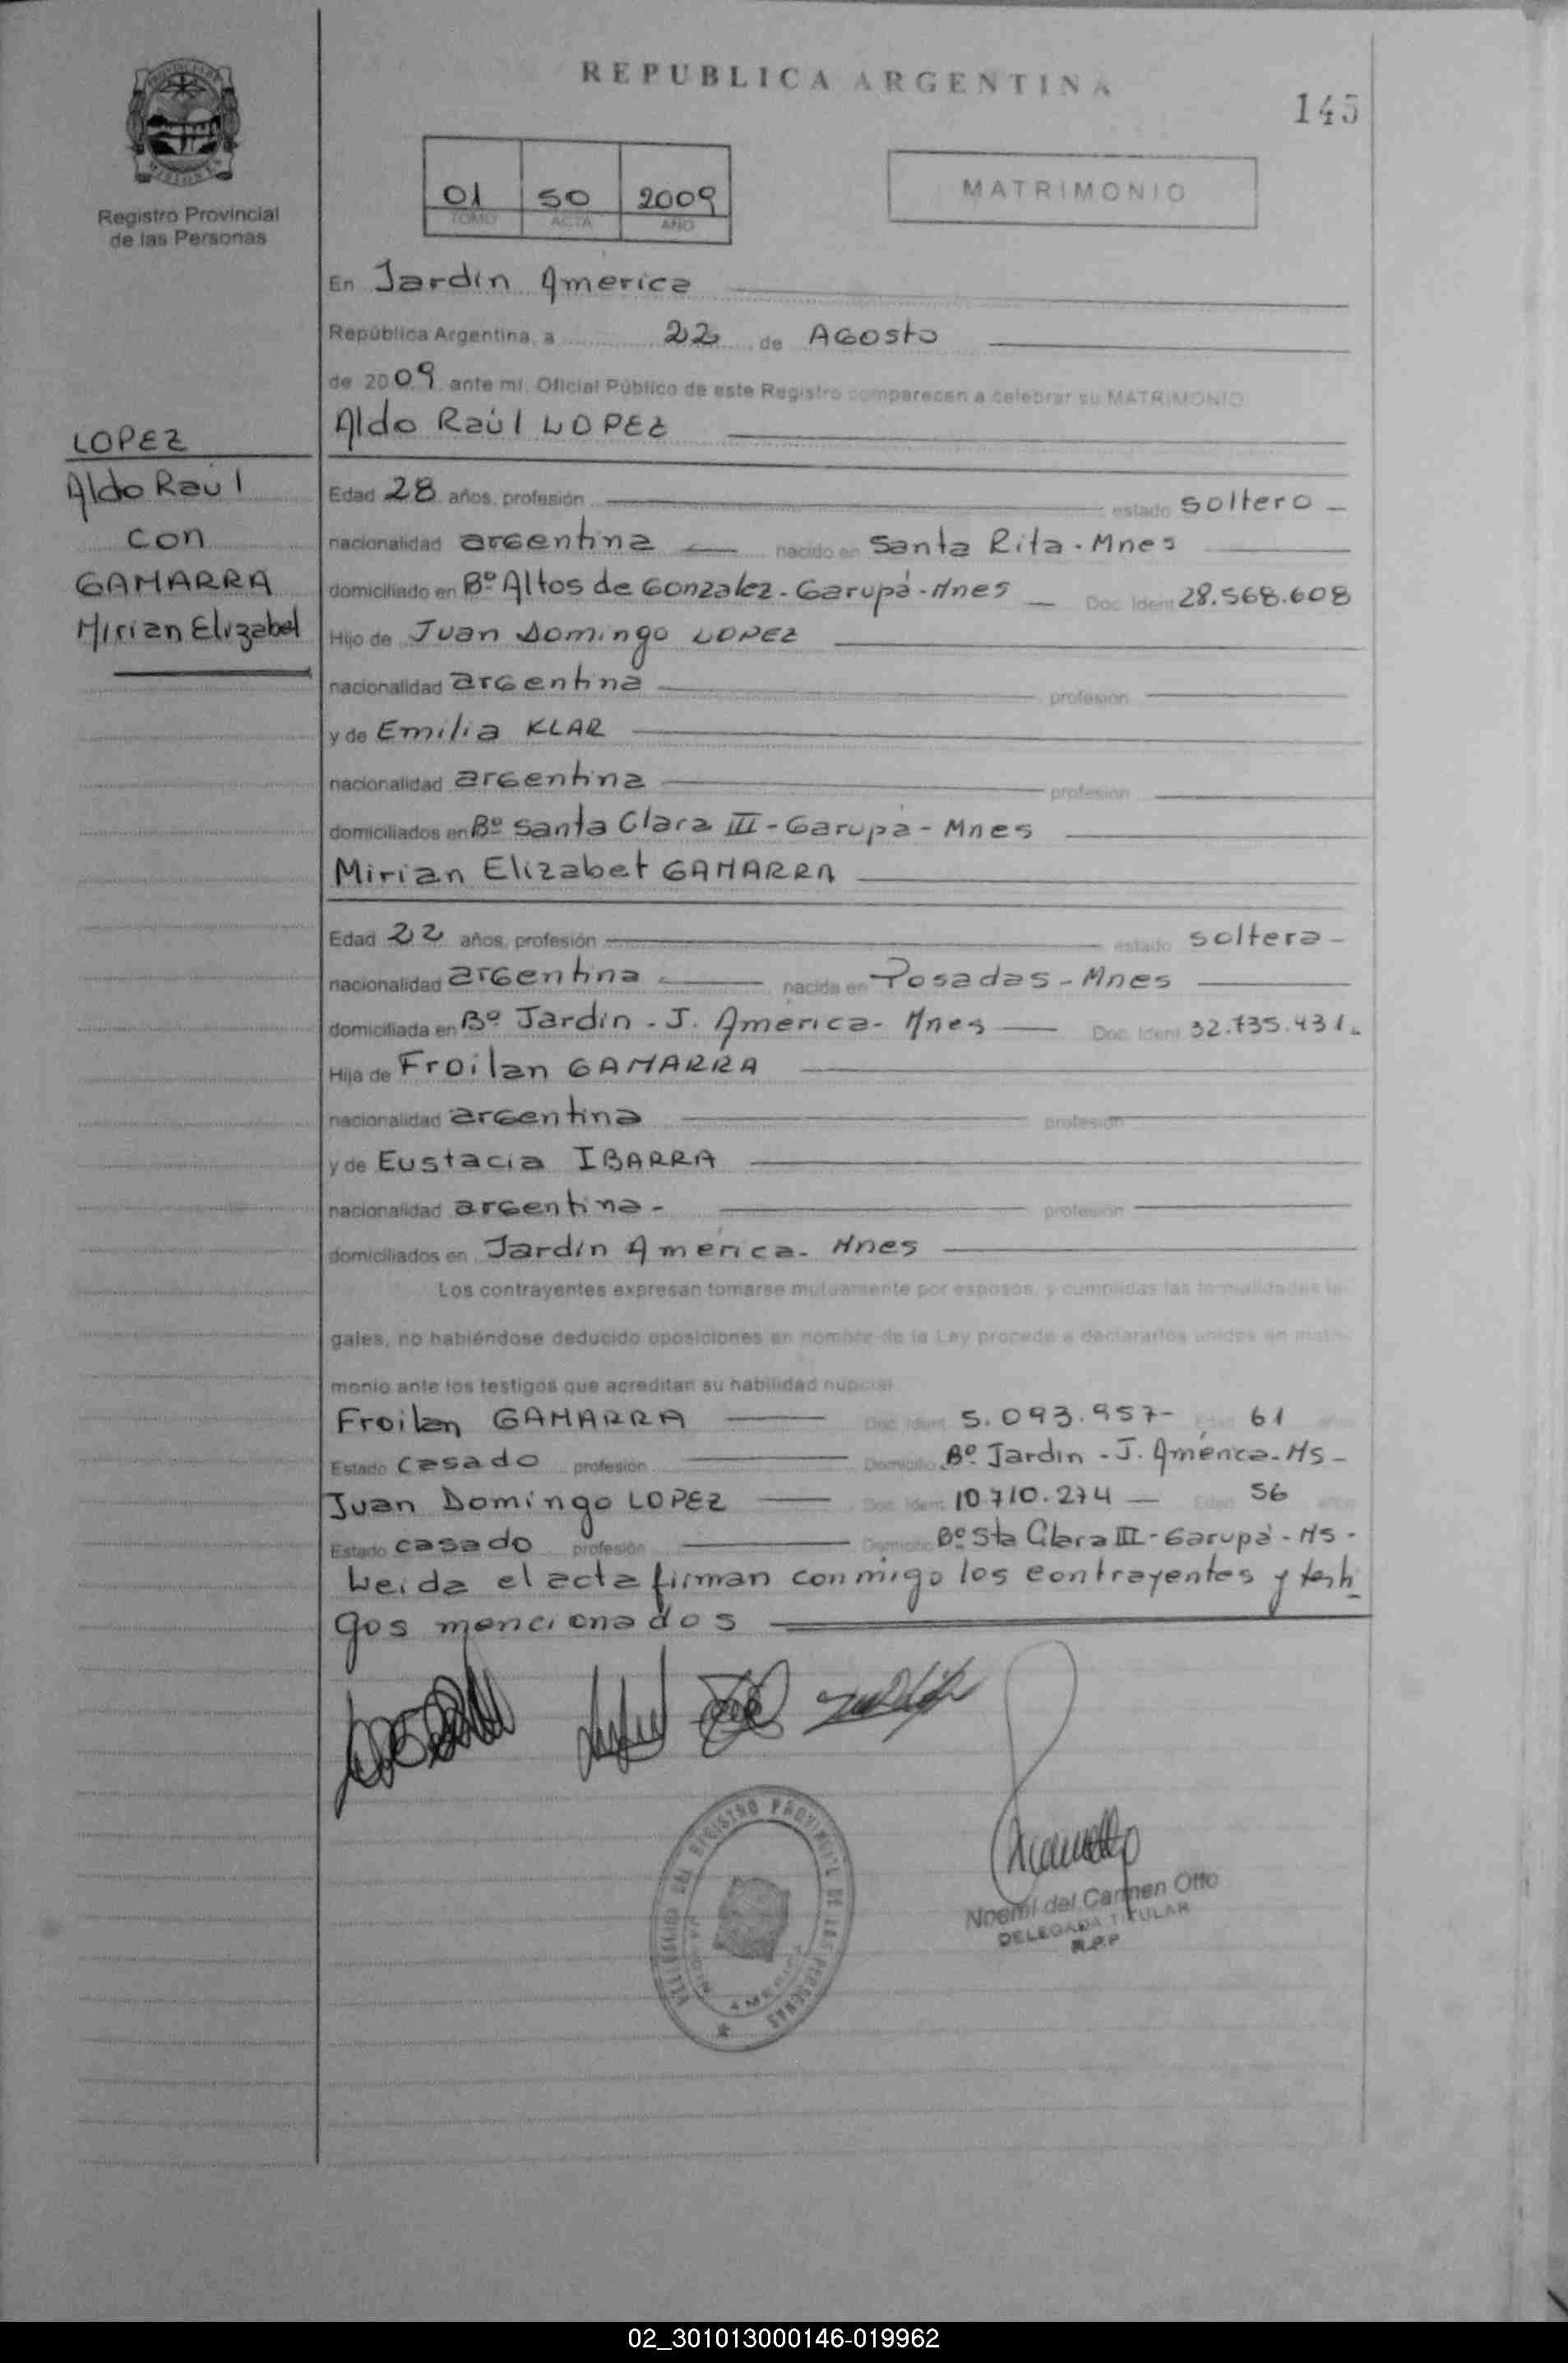 REPUBLICA ARGENTINA
145
Registro Provincial
de las Personas
01 50 2009
TOMO ACTA AÑO
MATRIMONIO
En Jardín America
República Argentina, a 22 de AGosto
de 2009 ante mí, Oficial Público de este Registro comparecen a celebrar su MATRIMONIO
Aldo Raúl LOPEZ
LOPEZ
Aldo Raúl
con
GAMARRA
Mirian Elizabet
Edad 28 años, profesión estado soltero
nacionalidad arGentina nacido en Santa Rita - Mnes
domiciliado en Bº Altos de Gonzalez - Garupá - Mnes Doc. Ident 28.568.608
Hijo de Juan Domingo LOPEZ
nacionalidad arGentina profesión
y de Emilia KLAR
nacionalidad arGentina profesión
domiciliados en Bº Santa Clara III - Garupá - Mnes
Mirian Elizabet GAMARRA
Edad 22 años, profesión estado soltera -
nacionalidad arGentina nacida en Posadas - Mnes
domiciliada en Bº Jardín - J. América - Mnes Doc. Ident 32.735.431.
Hija de Froilan GAMARRA
nacionalidad arGentina profesión
y de Eustacia IBARRA
nacionalidad arGentina - profesión
domiciliados en Jardín América - Mnes
Los contrayentes expresan tomarse mutuamente por esposos, y cumplidas las formalidades le-
gales, no habiéndose deducido oposiciones en nombre de la Ley procedo a declararlos unidos en matri-
monio ante los testigos que acreditan su habilidad nupcial
Froilan GAMARRA Doc. Ident 5.093.957 - Edad 61 años
Estado casado profesión Domicilio Bº Jardín - J. América - Ms -
Juan Domingo LOPEZ Doc. Ident 10.710.274 Edad 56 años
Estado casado profesión Domicilio Bº Sta Clara III - Garupá - Ms -
Leída el acta firman conmigo los contrayentes y testi
gos mencionados
DEL REGISTRO PROVINCIAL DE LAS PERSONAS
JARDIN AMERICA
Noemí del Carmen Otto
DELEGADA TITULAR
R.P.P
02_301013000146-019962